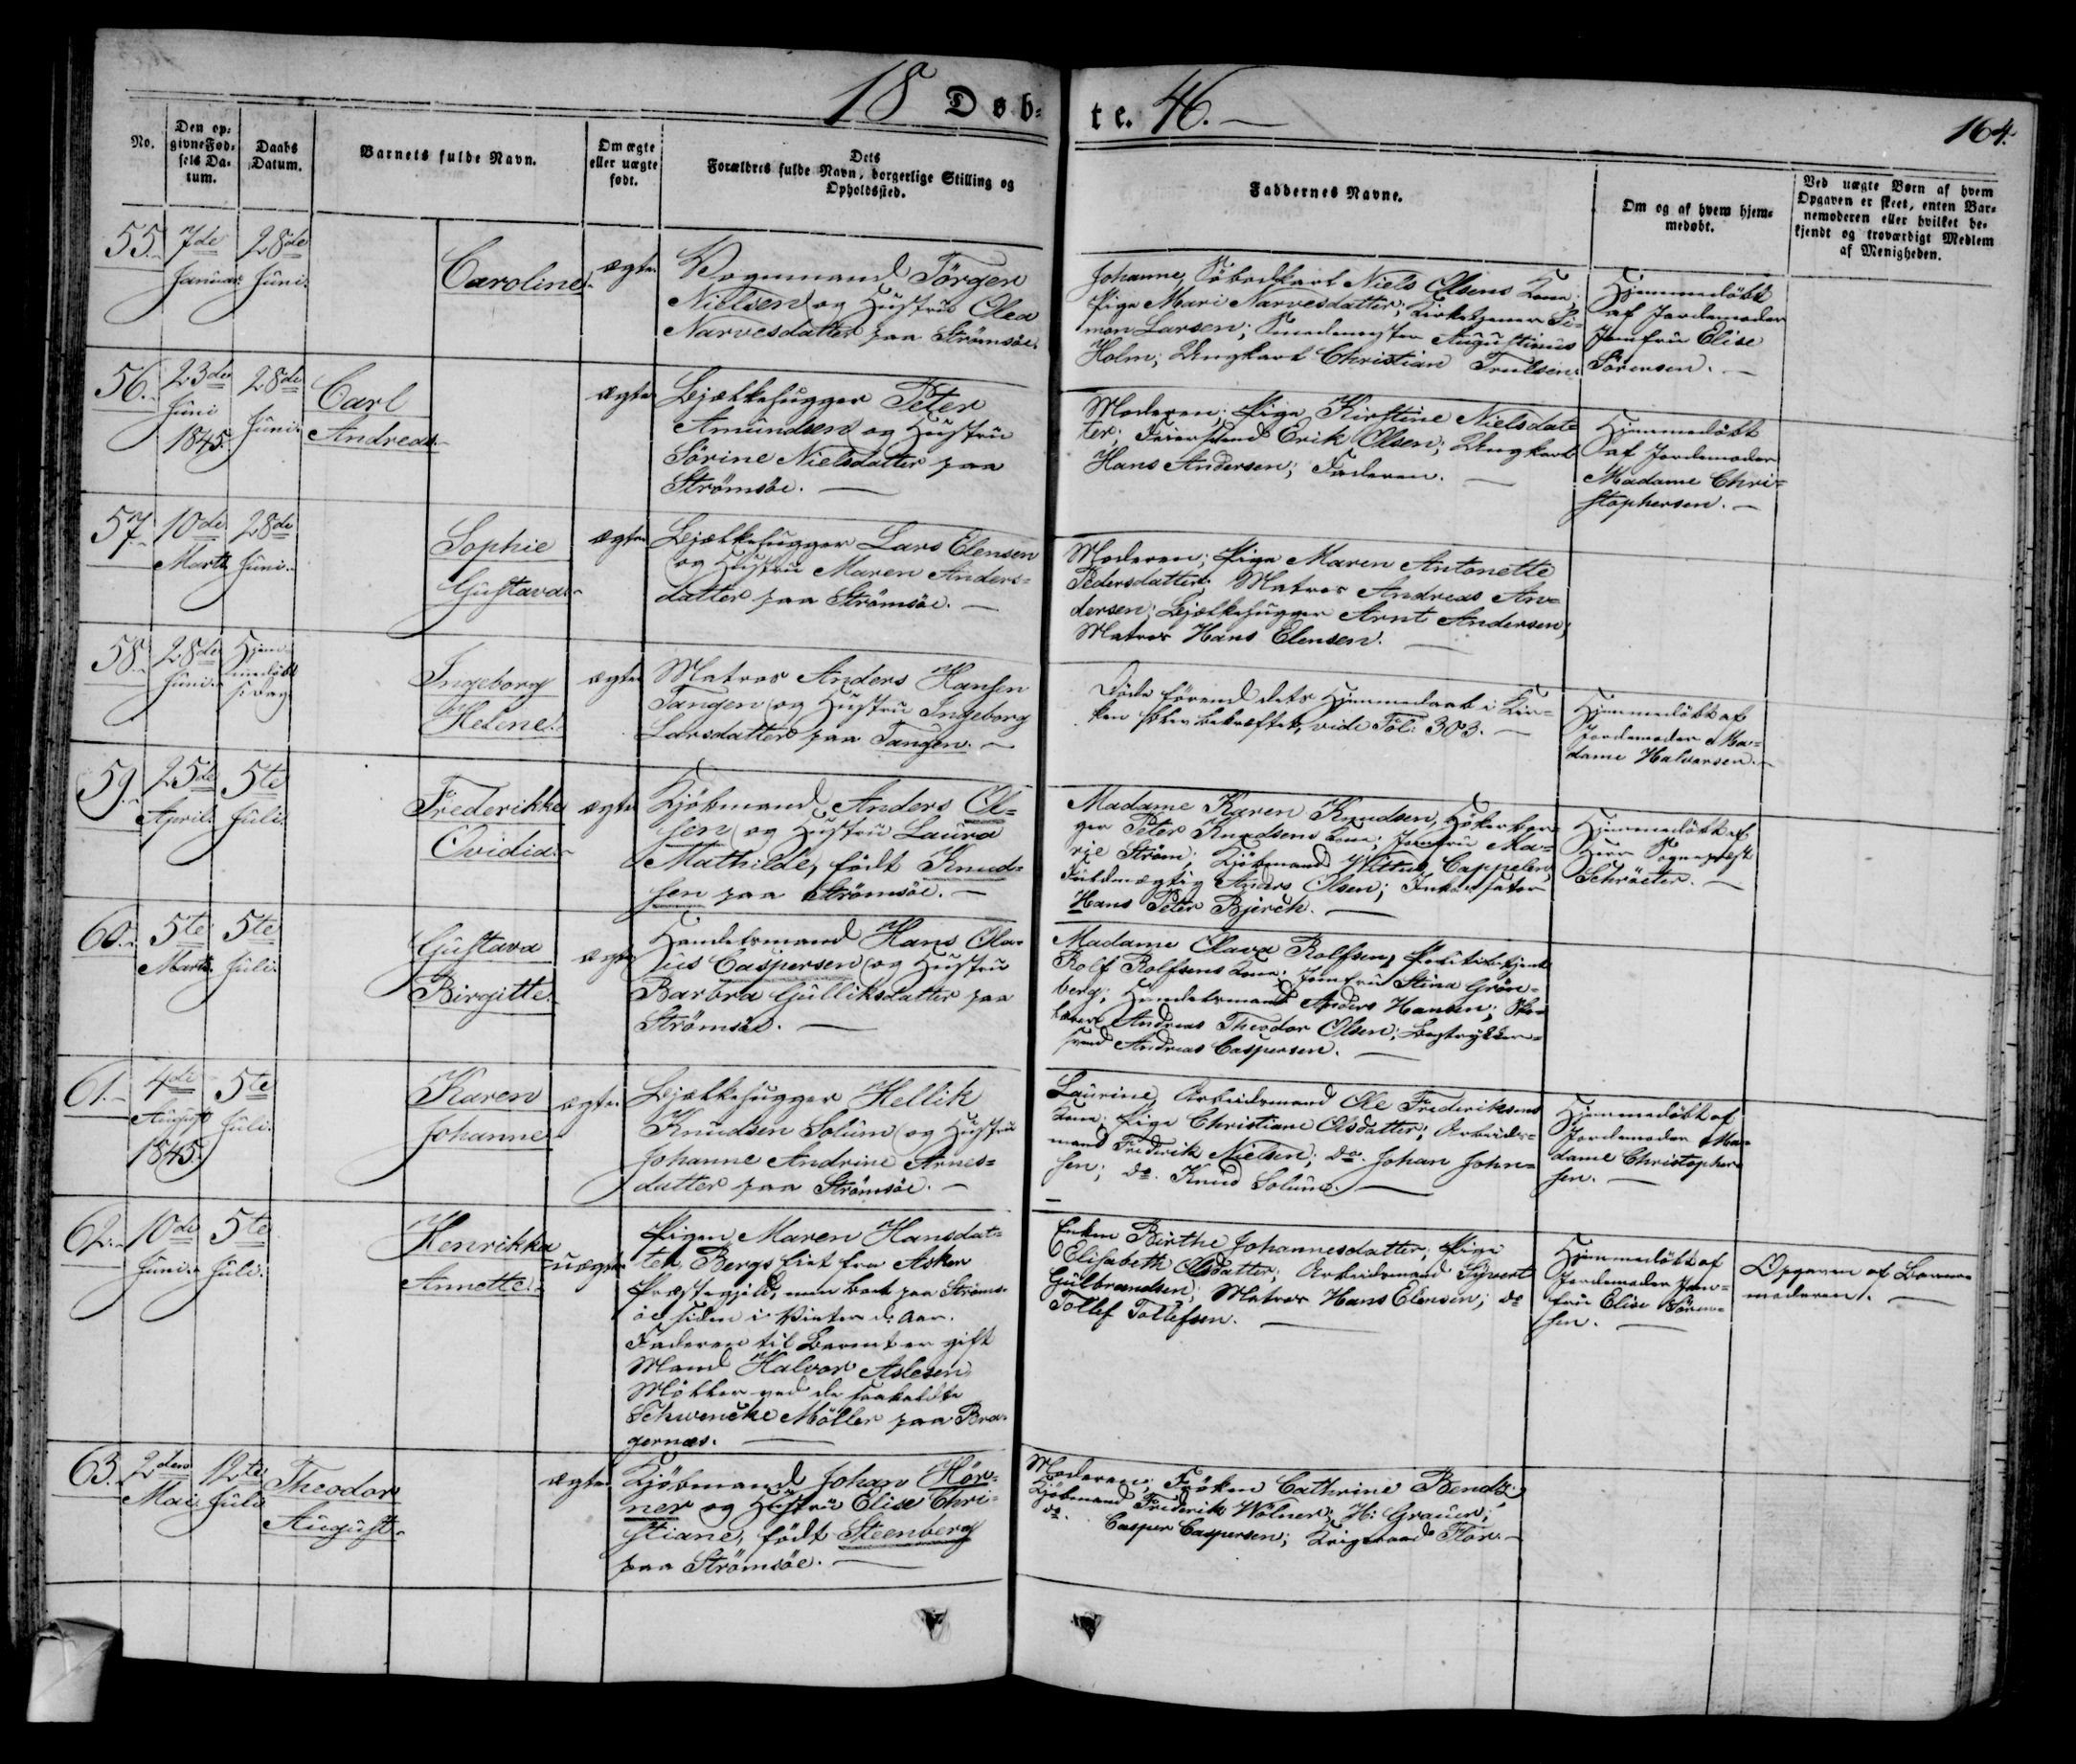 18 Døb-
te. 46.
164.
No.
Den op-
givne Fød-
sels Da-
tum.
Daabs
Datum.
Barnets fulde Navn.
Om ægte
eller uægte
født.
Dets
Forældres fulde Navn, borgerlige Stilling og
Opholdssted.
Faddernes Navne.
Om og af hvem hjem-
medøbt.
Ved uægte Børn af hvem
Opgaven er skeet, enten Bar-
nemoderen eller hvilket be-
kjendt og troværdigt Medlem
af Menigheden.
55.
7de
Januar.
28de
Juni.
Caroline.
ægte.
Vognmand Jörgen
Nielsen og Hustru Olea
Narvesdatter paa Strömsöe.
Johanne, Niels Olsens Kone;
Pige Mari Narvesdatter; Kirketjener Si-
mon Larsen; Augustinus
Holm; Ungkarl Christian Trulsen.
Hjemmedöbt
af Jordemoder
Jomfru Elise
Sörensen.
56.
23de
Juni
1845.
28de
Juni.
Carl
Andreas.
ægte
Bjælkehugger Peter
Amundsen og Hustru
Sörine Nielsdatter paa
Strömsöe.
Moderen; Pige Kirstine Nielsdat-
ter; Erik Olsen; Ungkarl
Hans Andersen; Faderen.
Hjemmedöbt
af Jordemoder
Madame Chri-
stophersen.
57.
10de
Marts
28de
Juni.
Sophie
Gustava.
ægte
Bjælkehugger Lars Elensen
og Hustru Maren Anders-
datter paa Strömsöe.
Moderen; Pige Maren Antonette
Pedersdatter; Matros Andreas An-
dersen; Bjælkehugger Arnt Andersen;
Matros Hans Elensen.
58.
28de
Juni.
Hjem-
medöbt
s. Dag.
Ingeborg
Helene.
ægte
Matros Anders Hansen
Tangen og Hustru Ingeborg
Larsdatter paa Tangen.
Döde förend dets Hjemmedaab i Kir-
ken blev bekræftet, vide Fol: 303.
Hjemmedöbt af
Jordemoder Ma-
dame Halvorsen.
59.
25de
April.
5te
Juli.
Frederikke
Ovidia.
ægte
Kjöbmand Anders Ol-
sen og Hustru Laura
Mathilde, födt Knud-
sen paa Strömsöe.
Madame Karen Knudsen, Hökerbor-
ger Peter Knudsens Kone; Jomfru Ma-
rie Ström; Kjöbmand Cappelen;
Fuldmægtig Anders Olsen;
Hans Peter Bjerch.
Hjemmedöbt af
Herr Sogneprest
Schröeter.
60.
5te
Marts
5te
Juli.
Gustava
Birgitte.
ægte
Handelsmand Hans Ola-
us Caspersen og Hustru
Barbra Gulliksdatter paa
Strömsöe.
Madame Olava Rolfsen, Politibetjent
Rolf Rolfsens Kone; Jomfru Stina Grön-
berg; Handelsmand Anders Hansen;
Andreas Theodor Olsen; Bogtrykker-
svend Andreas Caspersen.
61.
4de
August
1845.
5te
Juli.
Karen
Johanne.
ægte.
Bjælkehugger Hellik
Knudsen Solum og Hustru
Johanne Andrine Arnes-
datter paa Strömsöe.
Laurine, Arbeidsmand Ole Frederiksens
Kone; Pige Christiane Olsdatter; Arbeids-
mand Frederik Nielsen; do. Johan John-
sen; do. Knud Solum.
Hjemmedöbt af
Jordemoder Ma-
dame Christopher-
sen.
62.
10de
Juni
5te
Juli.
Henrikka
Annette.
uægte
Pigen Maren Hansdat-
ter Bergsfiet fra Asker
Præstegjeld, men boet paa Ströms-
öe siden i Vinter d: Aar.
Faderen til Barnet er gift
Mand Halvor Aslesen
Möller ved de saakaldte
Schwencke Möller paa Bra-
gernæs.
Enken Birthe Johannesdatter; Pige
Elisabeth Olsdatter; Arbeidsmand Syvert
Gulbrandsen; Matros Hans Elensen; do
Tollef Tollefsen.
Hjemmedöbt af
Jordemoder Jom-
fru Elise Sören-
sen.
Opgaven af Barne-
moderen.
63.
2den
Mai
12te
Juli
Theodor
August.
ægte.
Kjöbmand Johan Hör-
ner og Hustru Elise Chri-
stiane, födt Steenberg
paa Strömsöe.
Moderen; Fröken Cathrine Bendz;
Kjöbmand Frederik Wölner; H: Grauer;
do. Casper Caspersen; Krigsraad Flor.